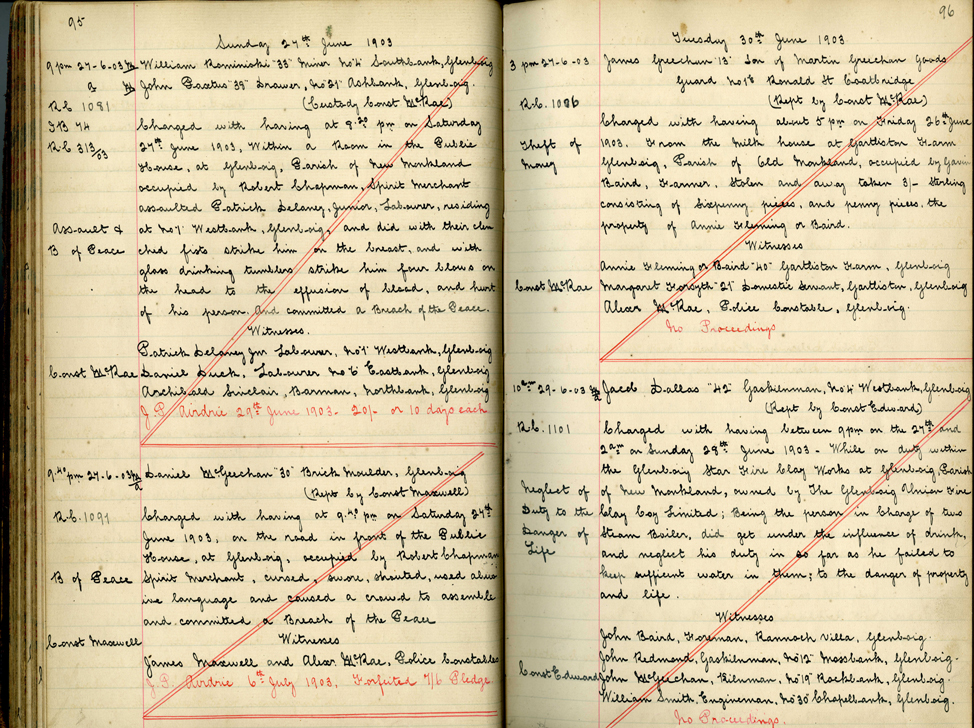 95
Sunday 27th June 1903
9 pm 27-6-03 William Kominiski "33" Miner No 4 Southbank, Glenboig
& John "39" Drawer, No 21 Ashbank, Glenboig.
R.C. 1081 (Custody Const McRae)
J B 74 Charged with having at 8.20 pm on Saturday
R.C. 313/03 27th June 1903, Within a Room in the Public
House, at Glenboig, Parish of New Monkland
occupied by Robert Chapman, Spirit Merchant
assaulted Patrick Delaney, Junior, Labourer, residing
Assault & at No 7 Westbank, Glenboig, and did with their clen
B of Peace ched fists strike him on the breast, and with
glass drinking tumblers strike him four blows on
the head to the effusion of blood, and hurt
of his person. And committed a Breach of the Peace.
Witnesses.
Patrick Delaney Jnr Labourer, No 7 Westbank, Glenboig
Const McRae Daniel Duck, Labourer No 6 Eastbank, Glenboig
Archibald Sinclair, Barman, Northbank, Glenboig
J.P. Airdrie 29th June 1903. 20/- or 10 days each
9.40 pm 27-6-03 Daniel McGeechan "30" Brick Moulder, Glenboig
(Rept by Const Maxwell)
R.C. 1091 Charged with having at 9.40 pm on Saturday 27th
June 1903, on the road in front of the Public
House, at Glenboig, occupied by Robert Chapman
B of Peace Spirit Merchant, cursed, swore, shouted, used abus
ive language and caused a crowd to assemble
and committed a Breach of the Peace
Const Maxwell Witnesses
James Maxwell and Alexr McRae, Police Constables
J.P. Airdrie 6th July 1903, Forfeited 7/6 Pledge
96
Tuesday 30th June 1903
3 pm 27-6-03 James Geechan "13" Son of Martin Geechan Goods
Guard No 18 Ronald St Coatbridge
R.C. 1086 (Rept by Const McRae)
Charged with having about 5 pm on Friday 26th June
Theft of 1903, From the Milk house at Gartliston Farm
Money Glenboig, Parish of Old Monkland, occupied by Gavin
Baird, Farmer, Stolen and away taken 3/- Sterling
consisting of Sixpenny pieces, and penny pieces, the
property of Annie Fleming or Baird.
Witnesses
Annie Fleming or Baird "40" Gartliston Farm, Glenboig
Const McRae Margaret Forsyth "21" Domestic Servant, Gartliston, Glenboig
Alexr McRae, Police Constable, Glenboig.
No Proceedings
10 am 29-6-03 Jacob Dallas "42" Gaskilnman, No 4 Westbank, Glenboig
(Rept by Const Edward)
R.C. 1101 Charged with having between 9 pm on the 27th and
2 am on Sunday 28th June 1903 - While on duty within
the Glenboig Star Fire Clay Works at Glenboig, Parish
Neglect of of New Monkland, owned by The Glenboig Union Fire
Duty to the Clay Coy Limited; Being the person in Charge of two
Danger of Steam Boiler, did get under the influence of drink,
Life and neglect his duty in so far as he failed to
keep sufficent water in them; to the danger of property
and life.
Witnesses
John Baird, Foreman, Rannoch Villa, Glenboig.
John Redmond, Gaskilnman, No 12 Mossbank, Glenboig.
Const Edward John McGeechan, Kilnman, No 19 Rockbank, Glenboig.
William Smith, Engineman, No 30 Chapelbank, Glenboig.
No Proceedings.